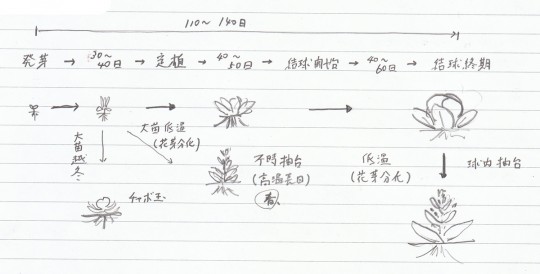 110〜140日
発芽 → 30〜40日 → 定植 → 40〜50日 → 結球開始 → 40〜60日 → 結球終期
大苗越冬
大苗低温
(花芽分化)
チャボ玉
不時抽台
(高温長日)
春
低温
(花芽分化)
球内抽台